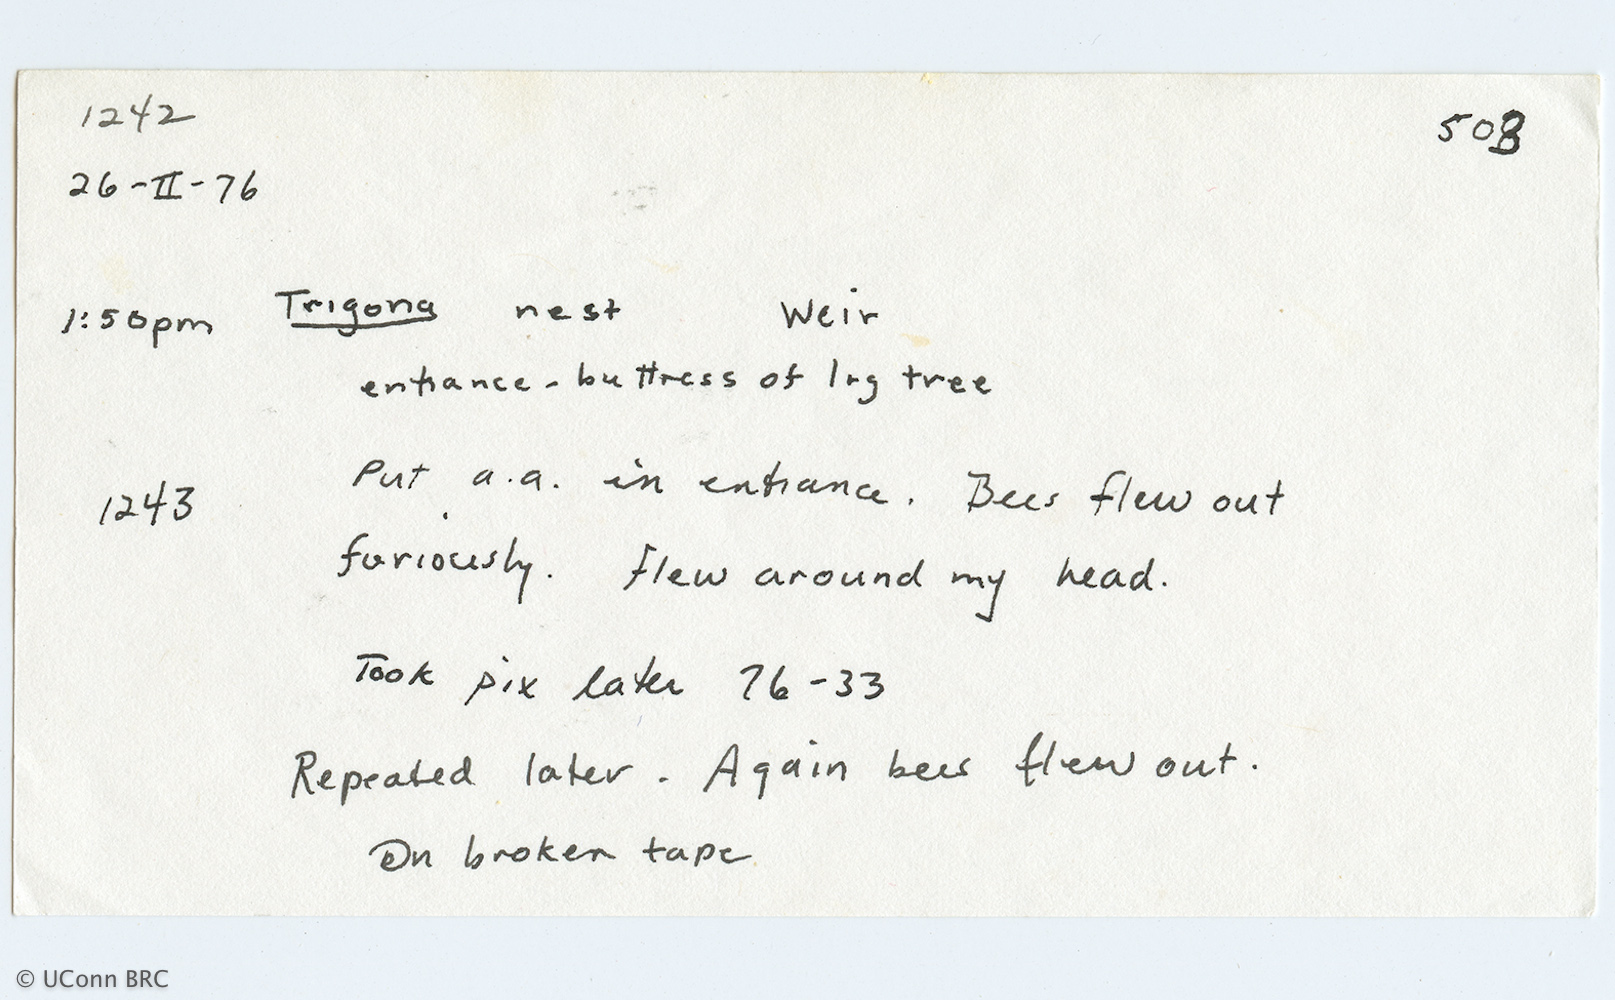 1242
508
26-II-76
1:50pm Trigona nest Weir
entrance - buttress of lrg tree
1243 Put a.a. in entrance. Bees flew out
furiously. Flew around my head.
Took pix later 76-33
Repeated later. Again bees flew out.
On broken tape
© UConn BRC